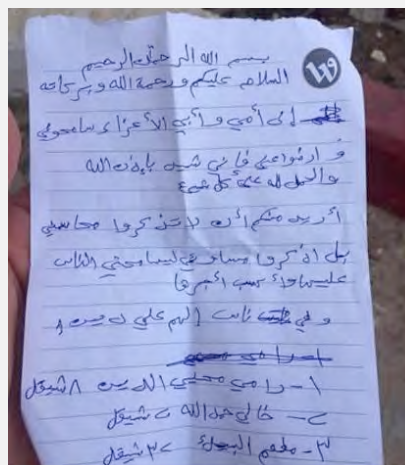 بسم الله الرحمن الرحيم
السلام عليكم ورحمة الله وبركاته
إلى أمي وأبي الأعزاء سامحوني
وارضوا عني فإني شهيد بإذن الله
والحمد لله على كل شيء
أريد منكم أن لا تذكروا محاسني
بل اذكروا مساوئي ليسامحني الناس
عليها ولأكسب أجرها
وفي ناس إلهم علي دين
١- رامي محيي الدين ٨ شيقل
٢- خالي عبد الله ٢٠ شيقل
٣- مطعم ٢٣ شيقل